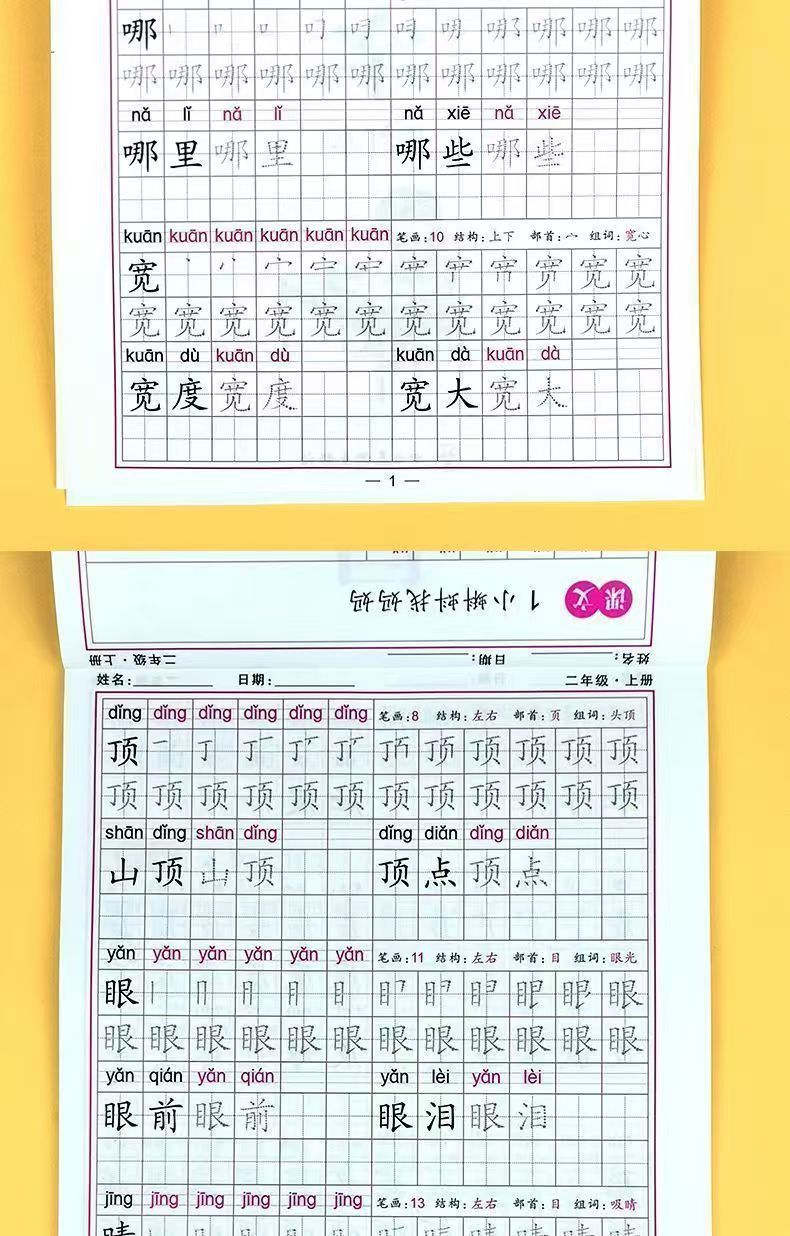 哪 哪 哪 哪
哪 哪 哪 哪 哪 哪 哪 哪 哪 哪 哪 哪
nǎ lǐ nǎ lǐ nǎ xiē nǎ xiē
哪 里 哪 里 哪 些 哪 些
kuān kuān kuān kuān kuān kuān 笔画:10 结构:上下 部首:宀 组词:宽心
宽 宽 宽
宽 宽 宽 宽 宽 宽 宽 宽 宽 宽 宽 宽
kuān dù kuān dù kuān dà kuān dà
宽 度 宽 度 宽 大 宽 大
— 1 —
课文 1 小蝌蚪找妈妈
姓名: 日期: 二年级·上册
姓名: 日期: 二年级·上册
dǐng dǐng dǐng dǐng dǐng dǐng 笔画:8 结构:左右 部首:页 组词:头顶
顶 顶 顶 顶 顶
顶 顶 顶 顶 顶 顶 顶 顶 顶 顶 顶 顶
shān dǐng shān dǐng dǐng diǎn dǐng diǎn
山 顶 山 顶 顶 点 顶 点
yǎn yǎn yǎn yǎn yǎn yǎn 笔画:11 结构:左右 部首:目 组词:眼光
眼 眼
眼 眼 眼 眼 眼 眼 眼 眼 眼 眼 眼 眼
yǎn qián yǎn qián yǎn lèi yǎn lèi
眼 前 眼 前 眼 泪 眼 泪
jīng jīng jīng jīng jīng jīng 笔画:13 结构:左右 部首:目 组词:吸睛